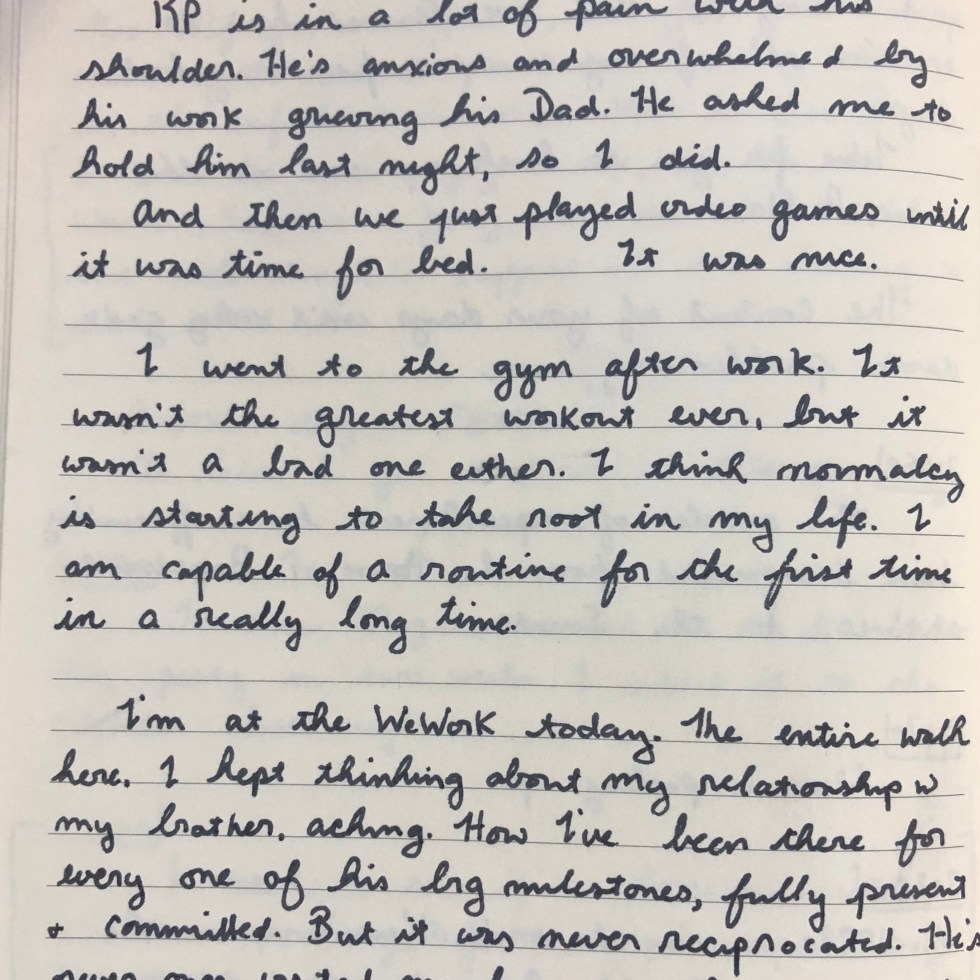 KP is in a lot of pain with his
shoulder. He's anxious and overwhelmed by
his work grieving his Dad. He asked me to
hold him last night, so I did.
And then we just played video games until
it was time for bed. It was nice.
I went to the gym after work. It
wasn't the greatest workout ever, but it
wasn't a bad one either. I think normalcy
is starting to take root in my life. I
am capable of a routine for the first time
in a really long time.
I'm at the WeWork today. The entire walk
here, I kept thinking about my relationship w
my brother, aching. How I've been there for
every one of his big milestones, fully present
+ committed. But it was never reciprocated. He's
never once